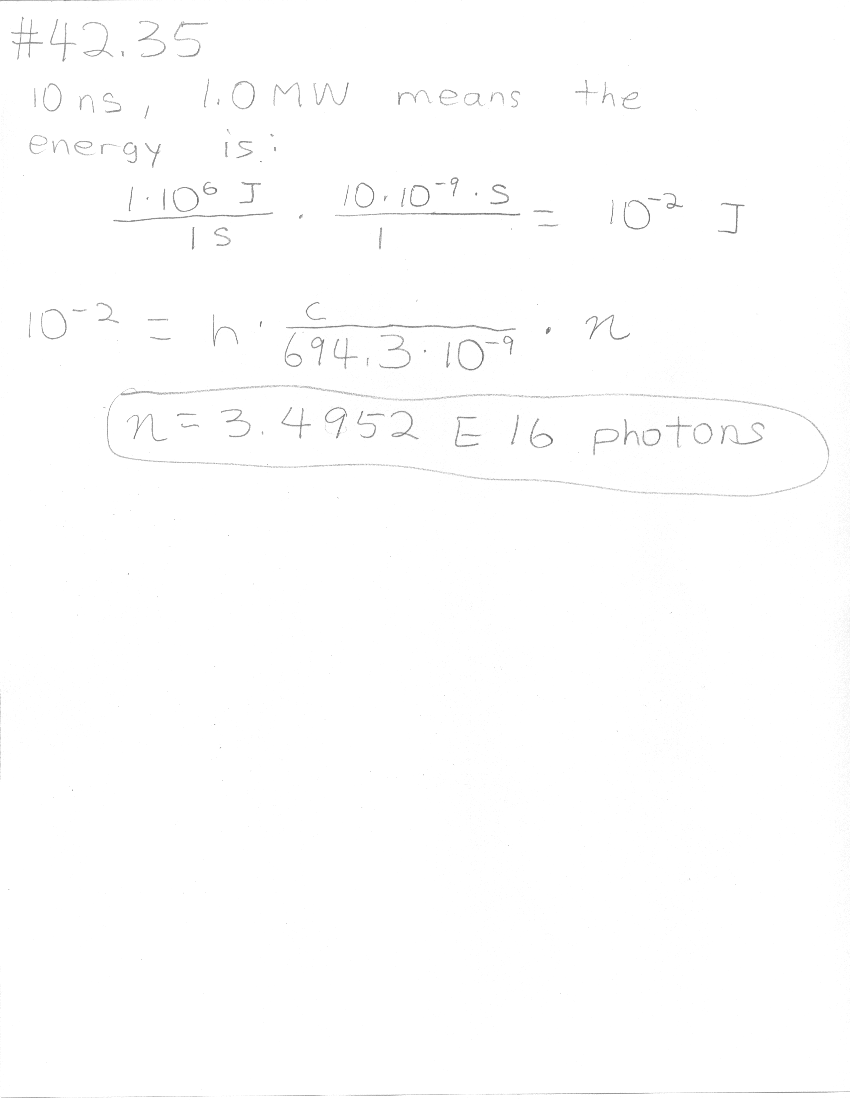 #42.35
10 ns, 1.0 MW means the
energy is:
1·10⁶ J / 1 S · 10·10⁻⁹·S / 1 = 10⁻² J
10⁻² = h · c / 694.3·10⁻⁹ · n
n = 3.4952 E 16 photons